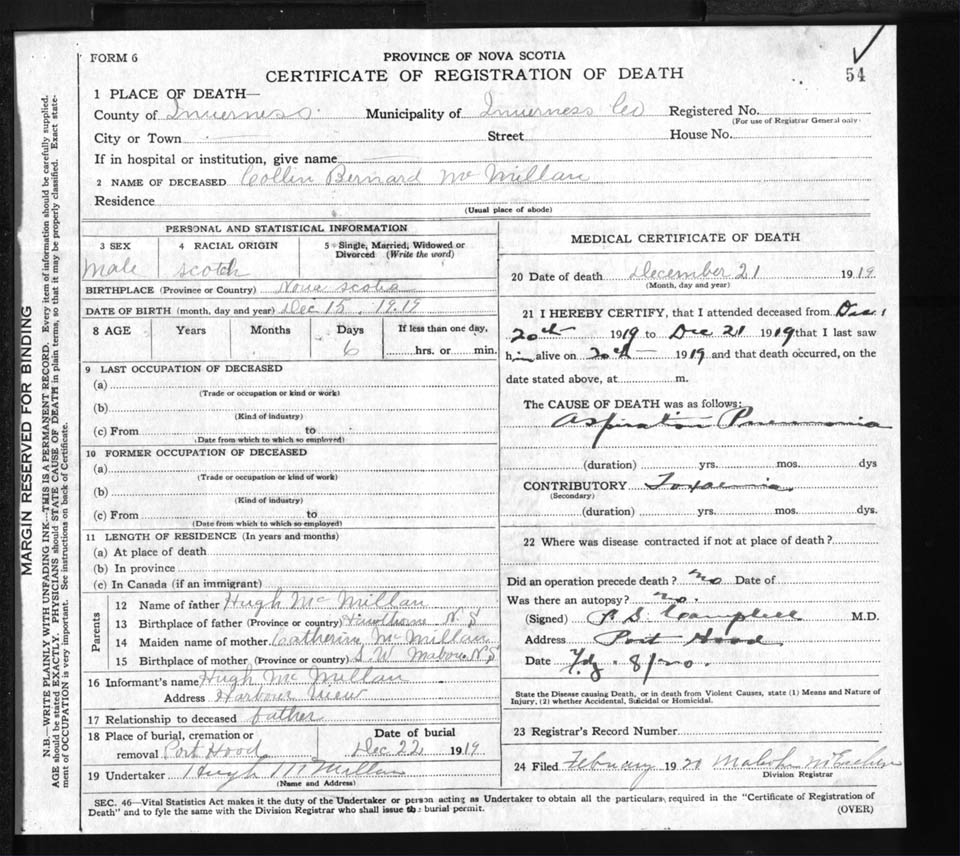 FORM 6
PROVINCE OF NOVA SCOTIA
CERTIFICATE OF REGISTRATION OF DEATH
54
1 PLACE OF DEATH—
County of Inverness Municipality of Inverness Co Registered No.
(For use of Registrar General only)
City or Town Street House No.
If in hospital or institution, give name
2 NAME OF DECEASED Collin Bernard Mc Millan
Residence
(Usual place of abode)
PERSONAL AND STATISTICAL INFORMATION
3 SEX 4 RACIAL ORIGIN 5 Single, Married, Widowed or
Divorced (Write the word)
Male Scotch
BIRTHPLACE (Province or Country) Nova Scotia
DATE OF BIRTH (month, day and year) Dec 15, 1919
8 AGE Years Months Days If less than one day,
6 hrs. or min.
9 LAST OCCUPATION OF DECEASED
(a)
(Trade or occupation or kind or work)
(b)
(Kind of industry)
(c) From to
(Date from which to which so employed)
10 FORMER OCCUPATION OF DECEASED
(a)
(Trade or occupation or kind of work)
(b)
(Kind of industry)
(c) From to
(Date from which to which so employed)
11 LENGTH OF RESIDENCE (In years and months)
(a) At place of death
(b) In province
(c) In Canada (if an immigrant)
Parents
12 Name of father Hugh Mc Millan
13 Birthplace of father (Province or country) Hawthorne N.S
14 Maiden name of mother Catherine Mc Millan
15 Birthplace of mother (Province or country) S. W. Mabou N.S
16 Informant's name Hugh Mc Millan
Address Harbour View
17 Relationship to deceased father
18 Place of burial, cremation or Date of burial
removal Port Hood Dec 22 1919
19 Undertaker Hugh McMillan
(Name and Address)
MEDICAL CERTIFICATE OF DEATH
20 Date of death December 21 1919
(Month, day and year)
21 I HEREBY CERTIFY, that I attended deceased from Dec.
20th 1919 to Dec 21 1919 that I last saw
him alive on 20th 1919 and that death occurred, on the
date stated above, at m.
The CAUSE OF DEATH was as follows:
Aspiration Pneumonia
(duration) yrs. mos. dys
CONTRIBUTORY Toxaemia
(Secondary)
(duration) yrs. mos. dys.
22 Where was disease contracted if not at place of death?
Did an operation precede death? no Date of
Was there an autopsy? no.
(Signed) S. Campbell M.D.
Address Port Hood
Date 8/20.
State the Disease causing Death, or in death from Violent Causes, state (1) Means and Nature of
Injury, (2) whether Accidental, Suicidal or Homicidal.
23 Registrar's Record Number
24 Filed February 1920
Division Registrar
SEC. 46—Vital Statistics Act makes it the duty of the Undertaker or person acting as Undertaker to obtain all the particulars required in the "Certificate of Registration of
Death" and to fyle the same with the Division Registrar who shall issue the burial permit.
(OVER)
MARGIN RESERVED FOR BINDING
N.B.—WRITE PLAINLY WITH UNFADING INK—THIS IS A PERMANENT RECORD. Every item of information should be carefully supplied.
AGE should be stated EXACTLY. PHYSICIANS should STATE CAUSE OF DEATH in plain terms, so that it may be properly classified. Exact state-
ment of OCCUPATION is very important. See instructions on back of Certificate.